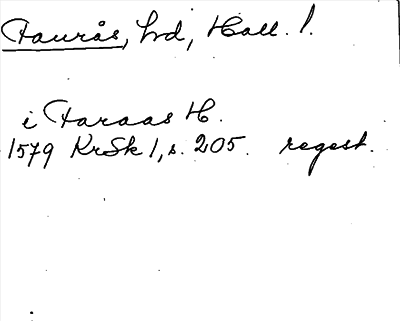 Faurås, hd, Hall. l.
i Faraas H.
1579 KrSk 1, s. 205. regest.